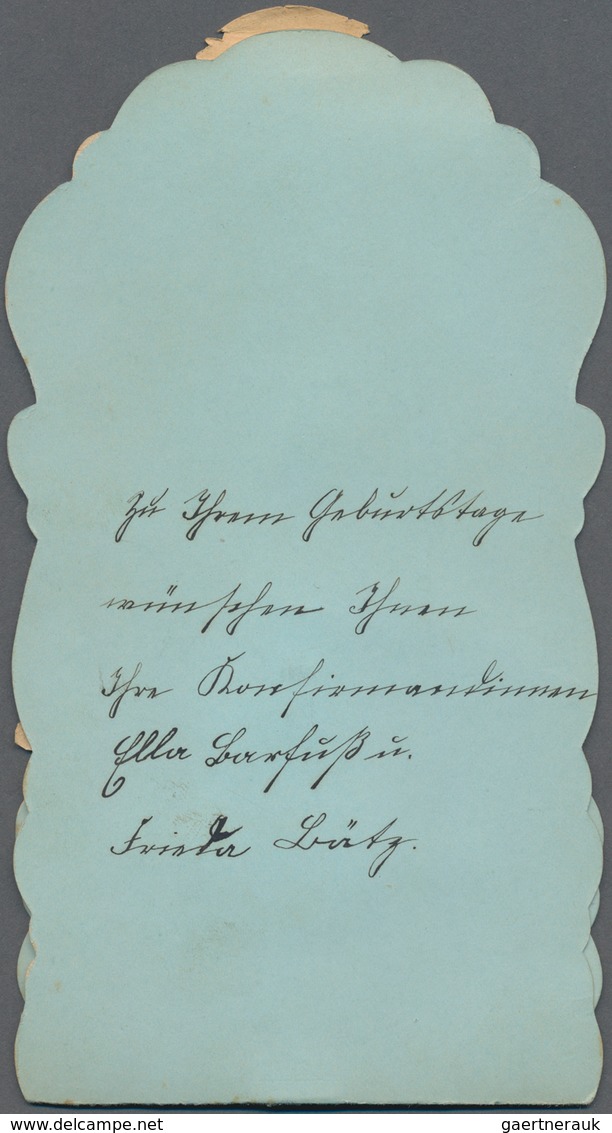 Zu Ihrem Geburtstage
wünschen Ihnen
Ihre Konfirmandinnen
Ella Barfuß u.
Frieda Bätz.
delcampe.net
gaertnerauk